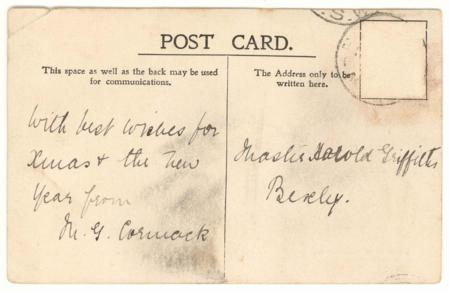 .S.W.
POST CARD.
This space as well as the back may be used
for communications.
The Address only to be
written here.
With best wishes for
Xmas & the New
Year from
M. G. Cormack
Master Harold Griffiths
Bexley.